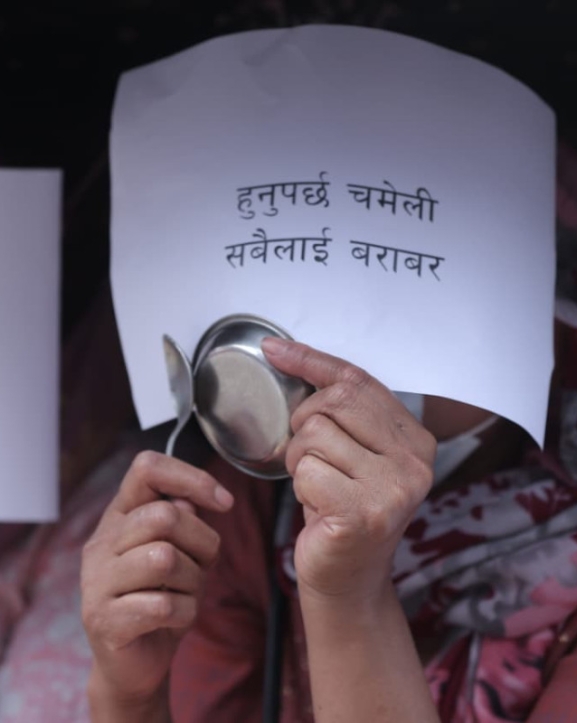 हुनुपर्छ चमेली
सबैलाई बराबर